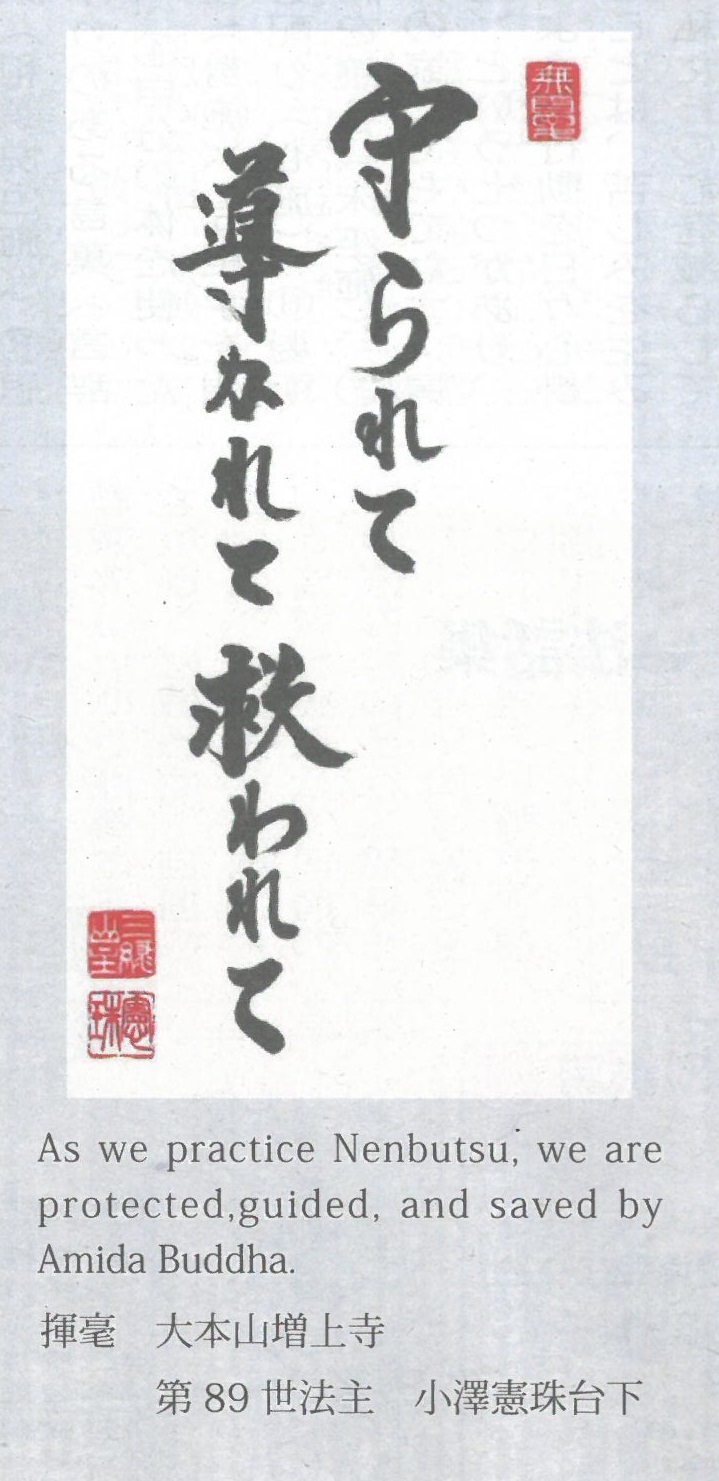 守られて
導かれて 救われて
As we practice Nenbutsu, we are
protected,guided, and saved by
Amida Buddha.
揮毫　大本山増上寺
第 89 世法主　小澤憲珠台下